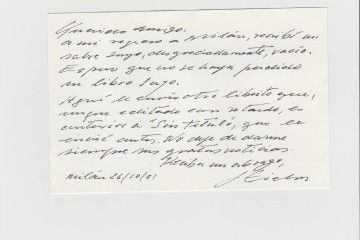 Querido amigo,
a mi regreso a Milán, recibí un
sobre suyo, desgraciadamente, vacío.
Espero que no se haya perdido
un libro suyo.
Aquí le envío otro librito que,
aunque editado con retardo, es
anterior a "Sin título", que le
envié antes. No deje de darme
siempre sus gratas noticias.
Reciba un abrazo,
Milán 26/10/01 J. Eielson